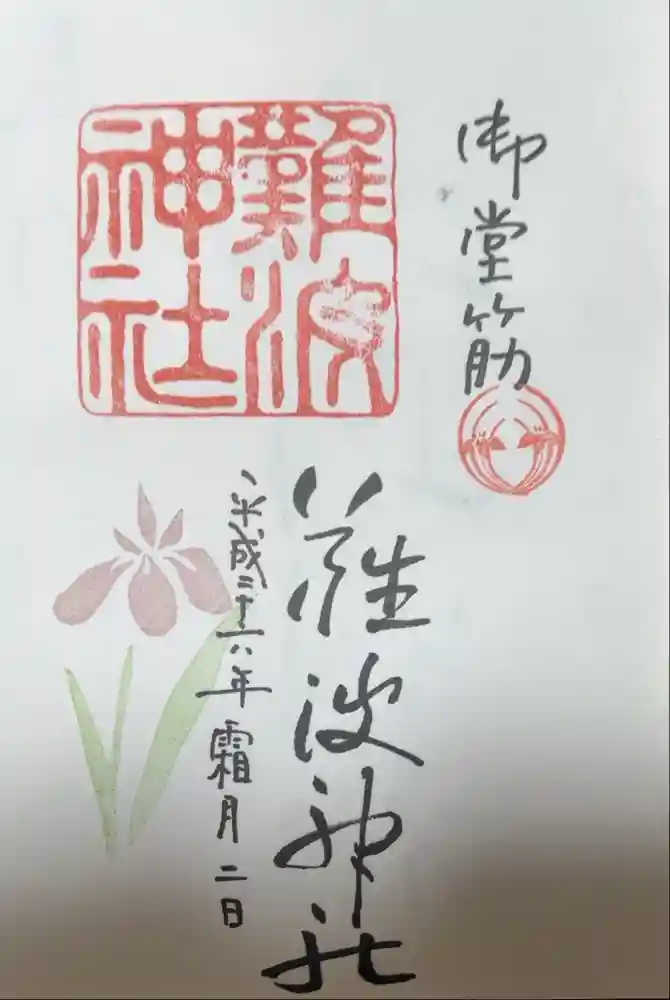 御堂筋
難波神社
難波神社
平成二十六年霜月二日